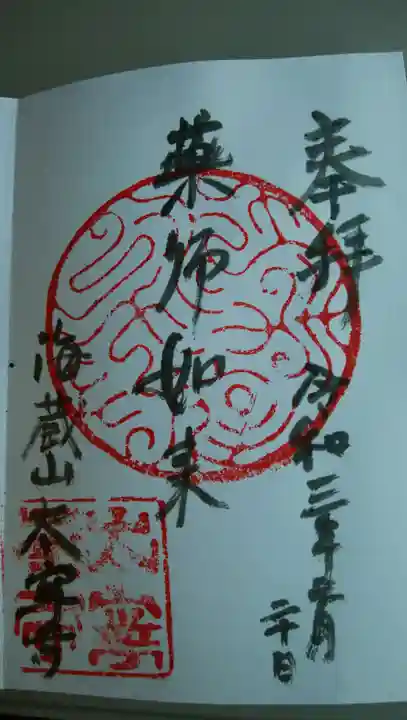 奉拝
令和三年二月
二十日
薬師如来
海蔵山太寧寺